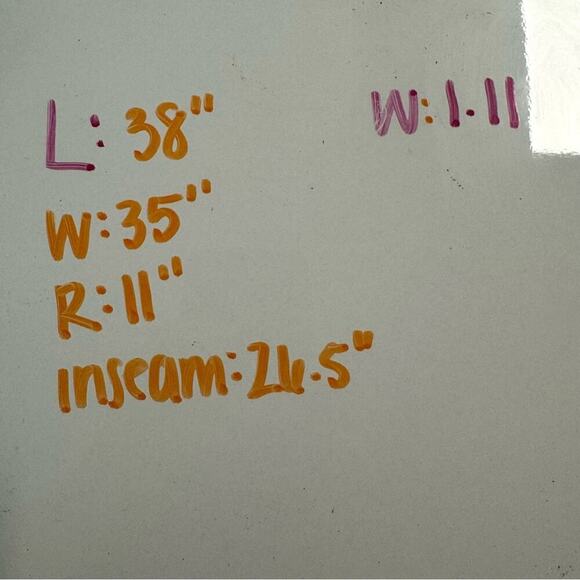 L: 38"
W: 1.11
W: 35"
R: 11"
inseam: 26.5"